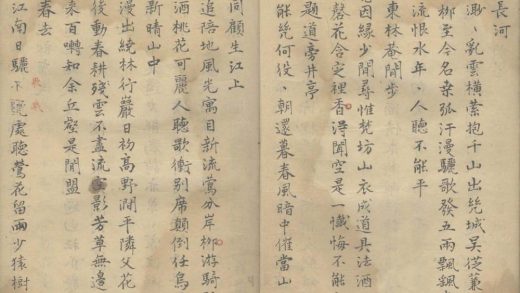 長河
渺、亂雲橫業抱千山出絕城吳徯蒹
梛至今名桒弧汗漫驪歌發五兩飄飄
流恨水年、人聽不能平
東林菴閒步
因緣少閒尋惟梵坊山衣成道具法酒
磬花含定裡香淂聞空是一懺悔不能
題道旁井亭
能幾何役、朝還暮春風暗中催當山
同顧生江上
追陪地風光寓目新流鶯分岸柳游騎
酒桃花可麗人聽歌衝別席顛倒任烏
新晴山中
漫出繞林行巖日初高野閒平隣父花
後動春耕殘雲不盡流影芳草無邊
来百囀知余丘壑是閒盟
春去
江南日驪不驪處聽鶯花留兩少猿樹